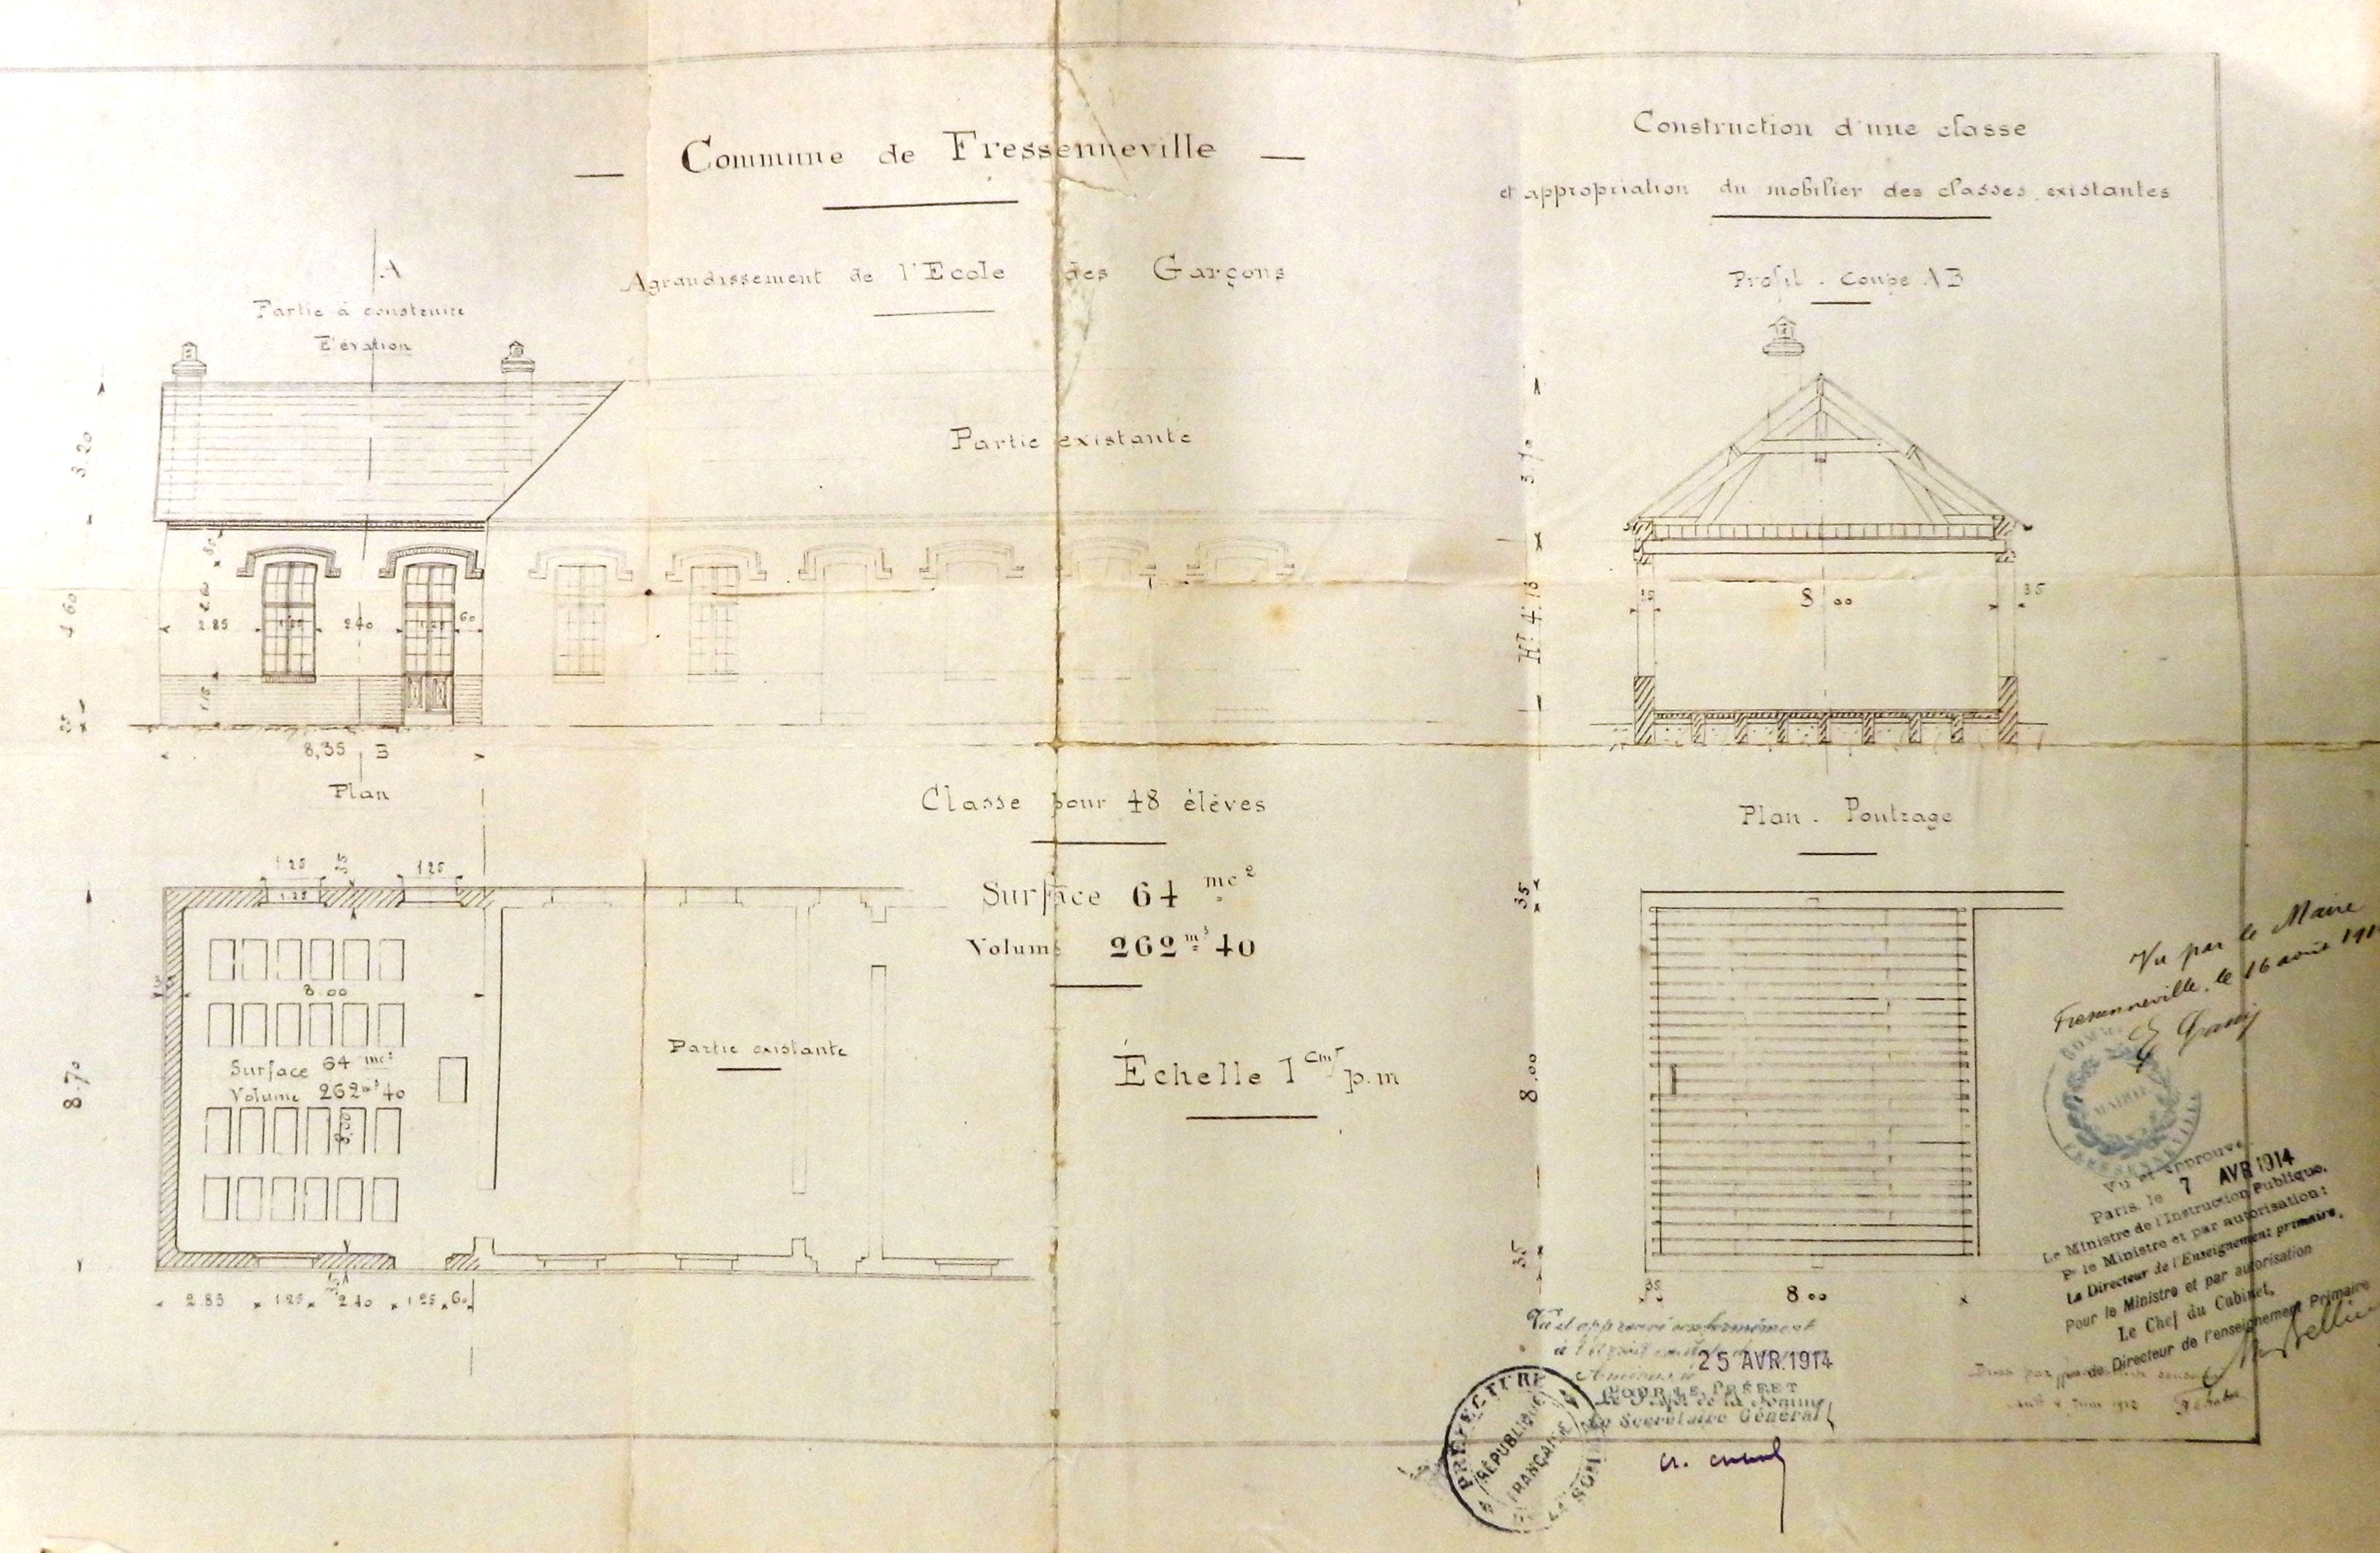 Commune de Fressenneville
Agrandissement de l'Ecole des Garçons
Construction d'une classe
et appropriation du mobilier des classes existantes
A
Partie à construire
Elévation
Partie existante
3.20
4.60
2.85
1.25
2.40
1.25
60
8,35
B
Profil . Coupe A B
35
8.00
35
Plan
1.25
35
1.25
1.25
8.00
Surface 64 mc²
Volume 262 m³ 40
8.00
8.70
2.85 1.25 2.40 1.25 60
Partie existante
Classe pour 48 élèves
Surface 64 mc²
Volume 262 m³ 40
Échelle 1 cm p.m
Plan . Poutrage
35
8.00
35
35
8.00
Vu par le Maire
Fressenneville, le 16 août
MAIRIE
Vu et approuvé
Paris, le 7 AVR 1914
Le Ministre de l'Instruction Publique,
Pr le Ministre et par autorisation:
Le Directeur de l'Enseignement primaire,
Pour le Ministre et par autorisation
Le Chef du Cabinet,
Directeur de l'enseignement Primaire
Vu et approuvé conformément
25 AVR.1914
POUR LE PRÉFET
Le Secrétaire Général
PRÉFECTURE
RÉPUBLIQUE
FRANÇAISE